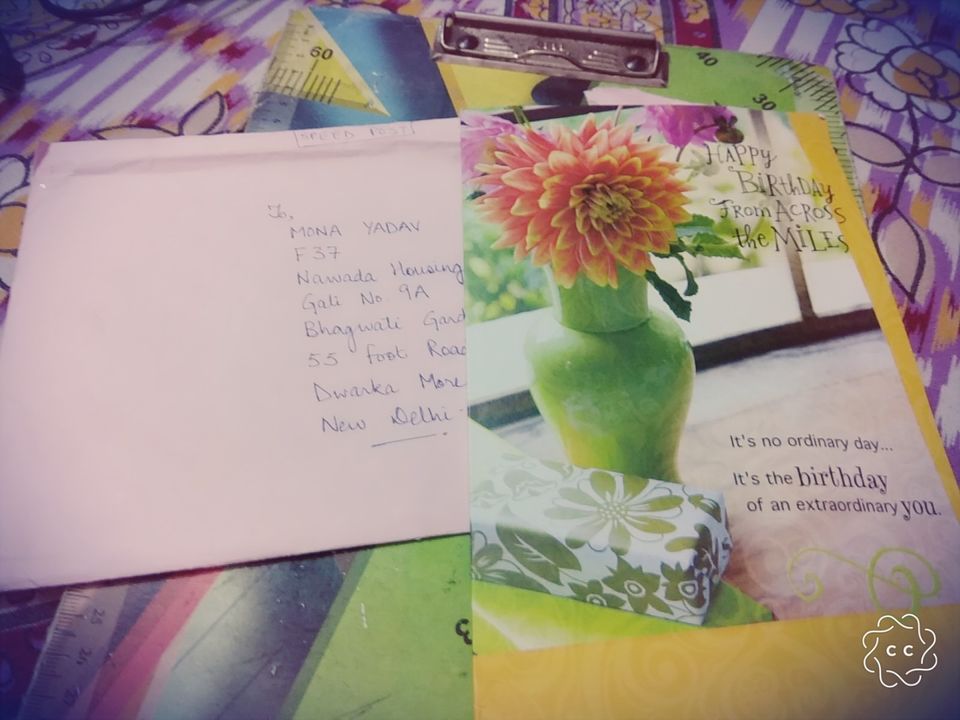 60
40
30
SPEED POST
To,
MONA YADAV
F 37
Nawada Housing
Gali No. 9A
Bhagwati Gard
55 foot Road
Dwarka More
New Delhi -
HAPPY
BIRthDAY
FROM ACROSS
the MILEs
It's no ordinary day...
It's the birthday
of an extraordinary you.
25
CC